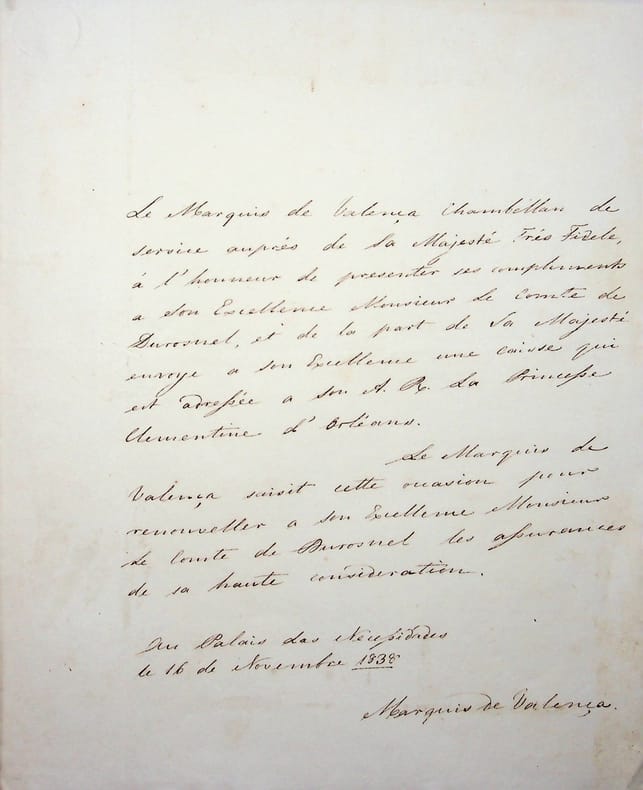 Le Marquis de Valença Chambéllan de
service auprés de Sa Majesté Trés Fidele,
à l'honneur de presenter ses compliments
a son Excellence Monsieur Le Comte de
Durosnel, et de la part de Sa Majesté
envoye a son Excellence une caisse qui
est adressée a son A. R. La Princesse
Clementine d'Orléans.
Le Marquis de
Valença saisit cette occasion pour
renouveller a son Excellence Monsieur
Le Comte de Durosnel les assurances
de sa haute consideration.
Au Palais das Necessidades
le 16 de Novembre 1838
Marquis de Valença.